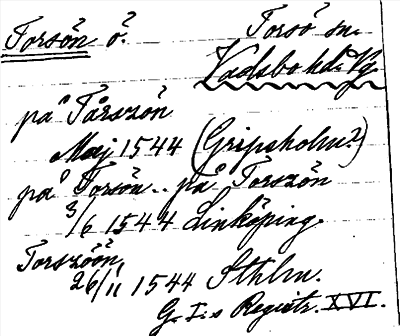 Torsön ö.
Torsö sn.
Vadsbo hd. Vg.
på Tårszön
Maj 1544 (Gripsholm?)
på Torsön.. på Torszön
3/6 1544 Linköping.
Torszöön
26/11 1544 Sthlm.
G. I:s Registr. XVI.